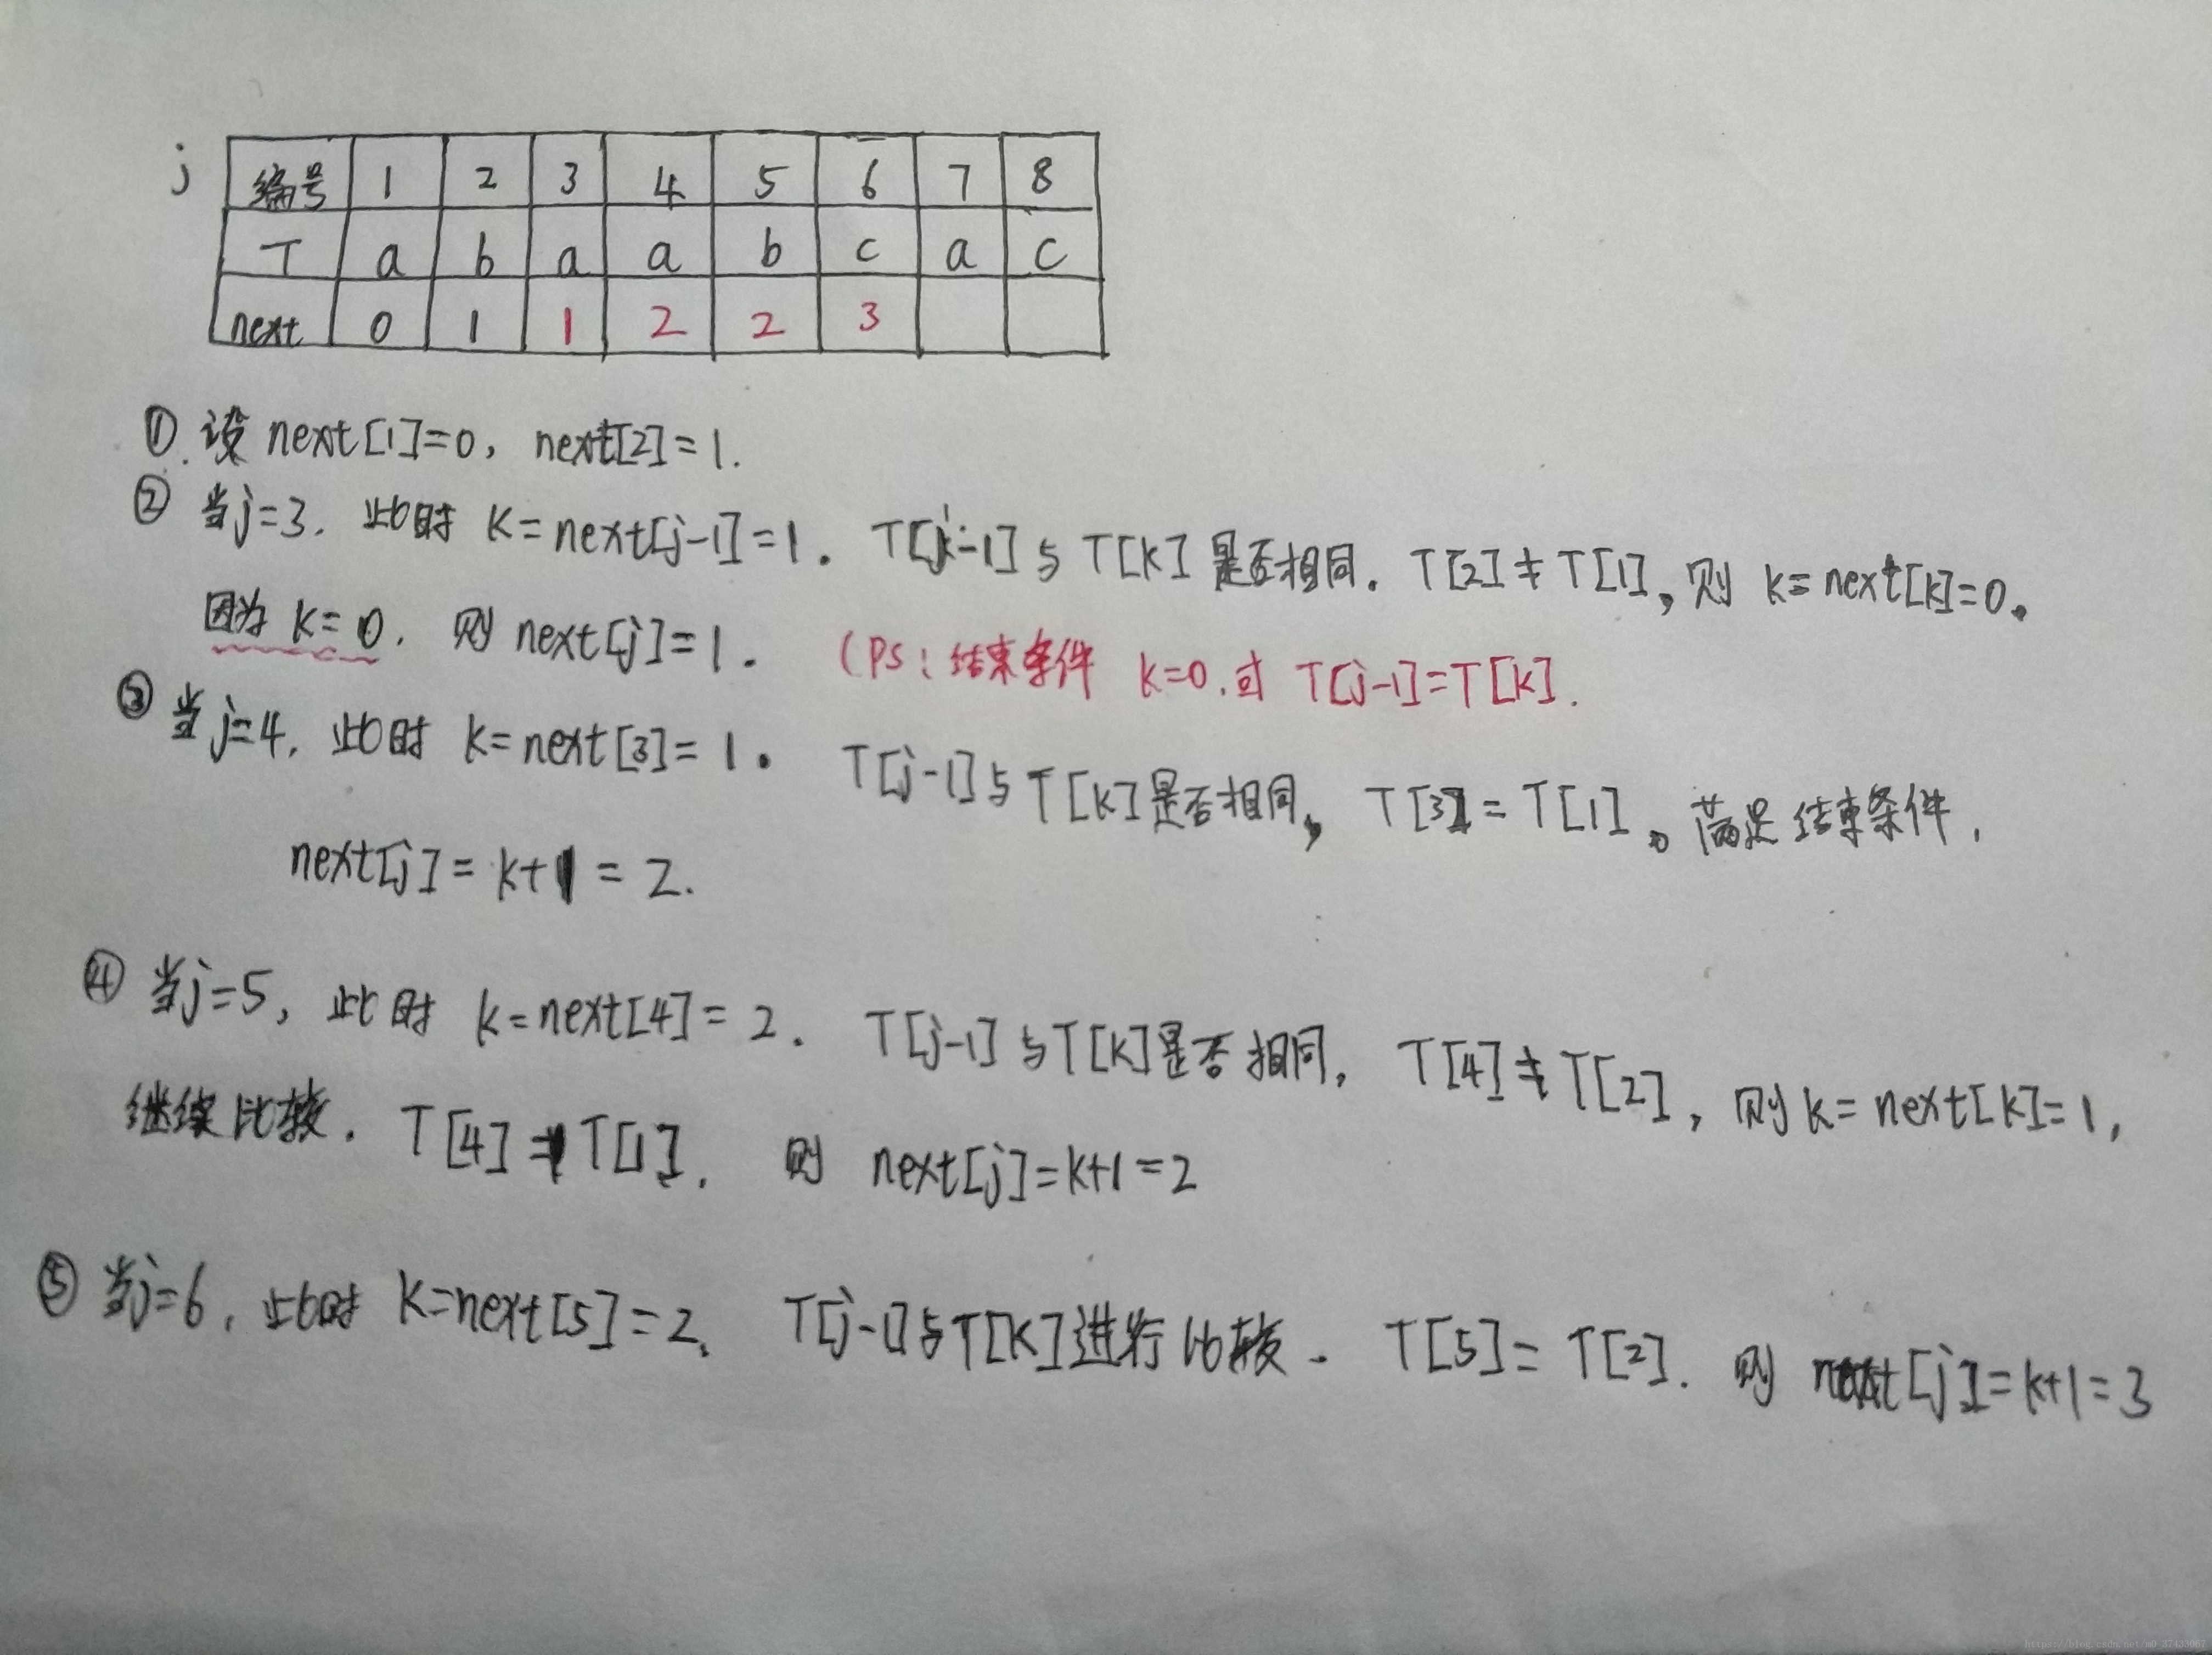 j 编号 1 2 3 4 5 6 7 8
T a b a a b c a c
next 0 1 1 2 2 3
①. 设 next[1]=0, next[2]=1.
② 当j=3. 此时 K=next[j-1]=1. T[j-1]与T[K]是否相同. T[2]≠T[1], 则 k=next[k]=0。
因为 k=0. 则 next[j]=1. (PS: 结束条件 k=0.或 T[j-1]=T[k].
③ 当j=4, 此时 k=next[3]=1. T[j-1]与T[k]是否相同, T[3]=T[1]。满足结束条件,
next[j]=k+1=2.
④ 当j=5, 此时 k=next[4]=2. T[j-1]与T[k]是否相同, T[4]≠T[2], 则k=next[k]=1,
继续比较. T[4]=T[1]. 则 next[j]=k+1=2
⑤ 当j=6, 此时 K=next[5]=2. T[j-1]与T[K]进行比较. T[5]=T[2]. 则 next[j]=k+1=3